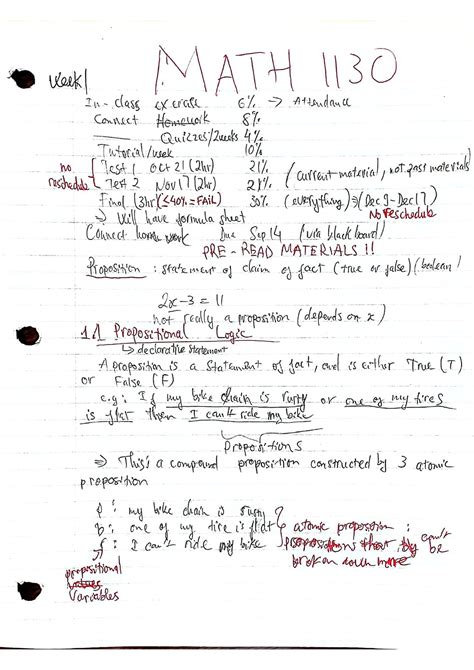 MATH 1130
Week 1
In-class excrase 6% → Attendance
Connect Homework 8%
Quizzes/2weeks 4%
Tutorial/week 10%
no reschedule
Test 1 Oct 21 (2hr) 21%
Test 2 Nov 17 (2hr) 21%
(current material, not past materials)
Final (3hr) (≤40% = FAIL) 30% (everything) ⇒ (Dec 9 - Dec 17)
No Reschedule
→ Will have formula sheet
Connect home work Due Sep 14 (via black board)
PRE-READ MATERIALS !!
Proposition : statement of claim of fact (true or false) (boolean)
2x-3 = 11
not really a proposition (depends on x)
1.1 Propositional Logic
↳ declarative statement
A proposition is a statement of fact, and is either True (T)
or False (F)
e.g: If my bike chain is rusty or one of my tires
is flat then I can't ride my bike
Propositions
⇒ This's a compound proposition constructed by 3 atomic
proposition
: my bike chain is rusty
: one of my tire is flat
: I can't ride my bike
atomic proposition :
proposition that can't be
broken down more
propositional
Variables